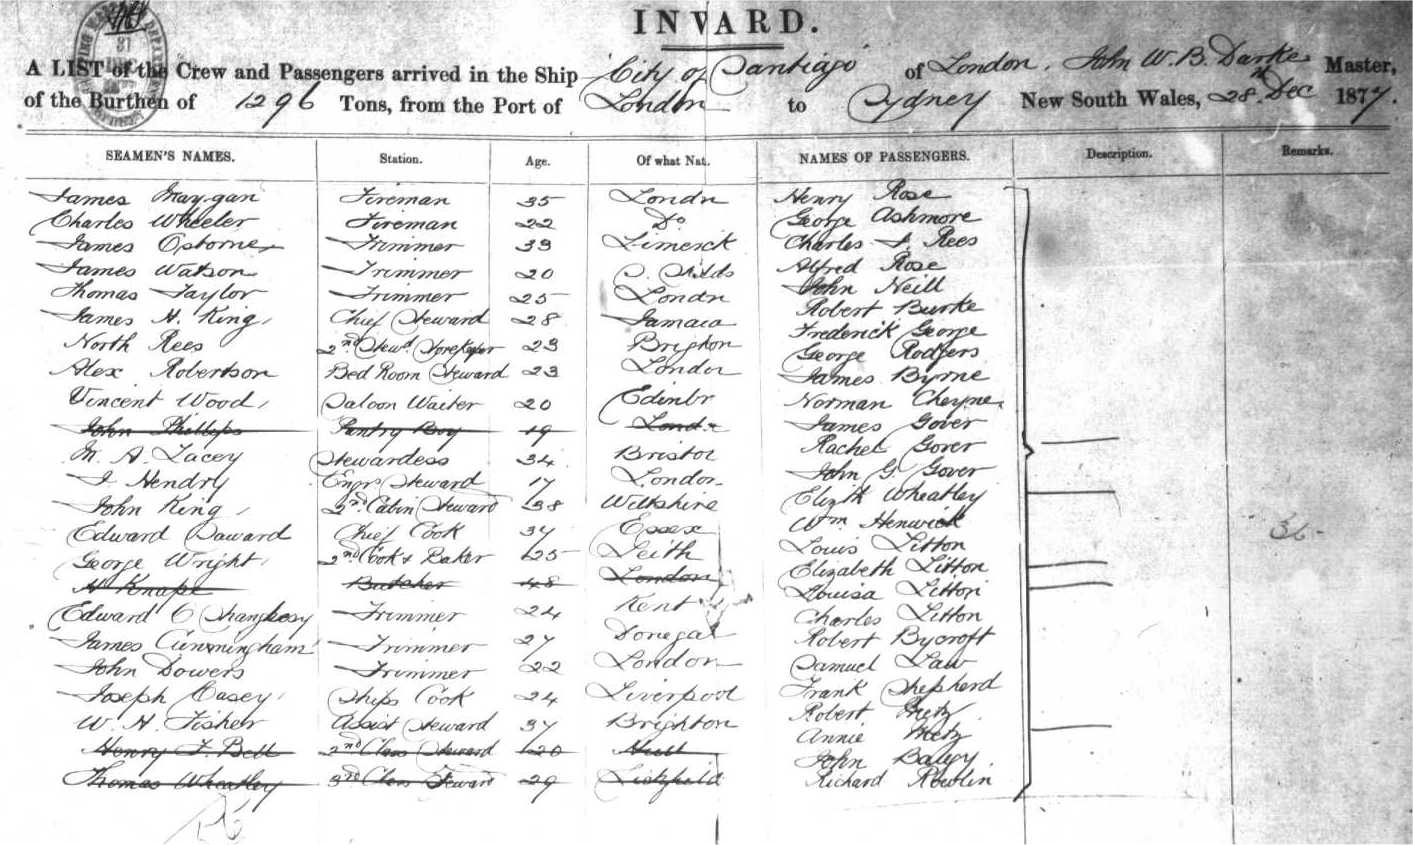 INWARD.
A LIST of the Crew and Passengers arrived in the Ship City of Santiago of London, John W. B. Darke Master,
of the Burthen of 1296 Tons, from the Port of London to Sydney New South Wales, 28th Dec 1877.
SEAMEN'S NAMES. Station. Age. Of what Nat. NAMES OF PASSENGERS. Description. Remarks.
James Maygan Fireman 35 Londn Henry Rose
Charles Wheeler Fireman 22 Do George Ashmore
James Osborne Trimmer 39 Limerick Charles J. Rees
James Watson Trimmer 20 S. Shilds Alfred Rose
Thomas Taylor Trimmer 25 Londn John Neill
James H. King Chief Steward 28 Jamaca Robert Burke
North Rees 2nd Stewd Storekeeper 23 Brighton Frederick George
Alex Robertson Bed Room Steward 23 London George Rodgers
Vincent Wood Saloon Waiter 20 Edinbr James Byrne
John Phillips Pantry Boy 19 Lond. Norman Cheyne
M. A. Lacey Stewardess 34 Bristol James Gover
J Hendry Engrs Steward 17 London Rachel Gover
John King 2nd Cabin Steward 38 Wiltshire John G. Gover
Edward Saward Chief Cook 37 Essex Elizth Wheatley
George Wright 2nd Cook & Baker 25 Leith Wm Henwick
H Knape Butcher 48 London Louis Litton
Edward O Shaughesy Trimmer 24 Kent Elizabeth Litton
James Cunningham Trimmer 27 Donegal Louisa Litton
John Dowers Trimmer 22 London Charles Litton
Joseph Casey Ships Cook 24 Liverpool Robert Bycroft
W. H. Fisher Assist Steward 37 Brighton Samuel Law
Henry J. Bell 2nd Class Steward 20 Hull Frank Shepherd
Thomas Wheatley 3rd Class Steward 29 Lichfield Robert Metz
Annie Metz
John Baley
Richard Rowlin
36